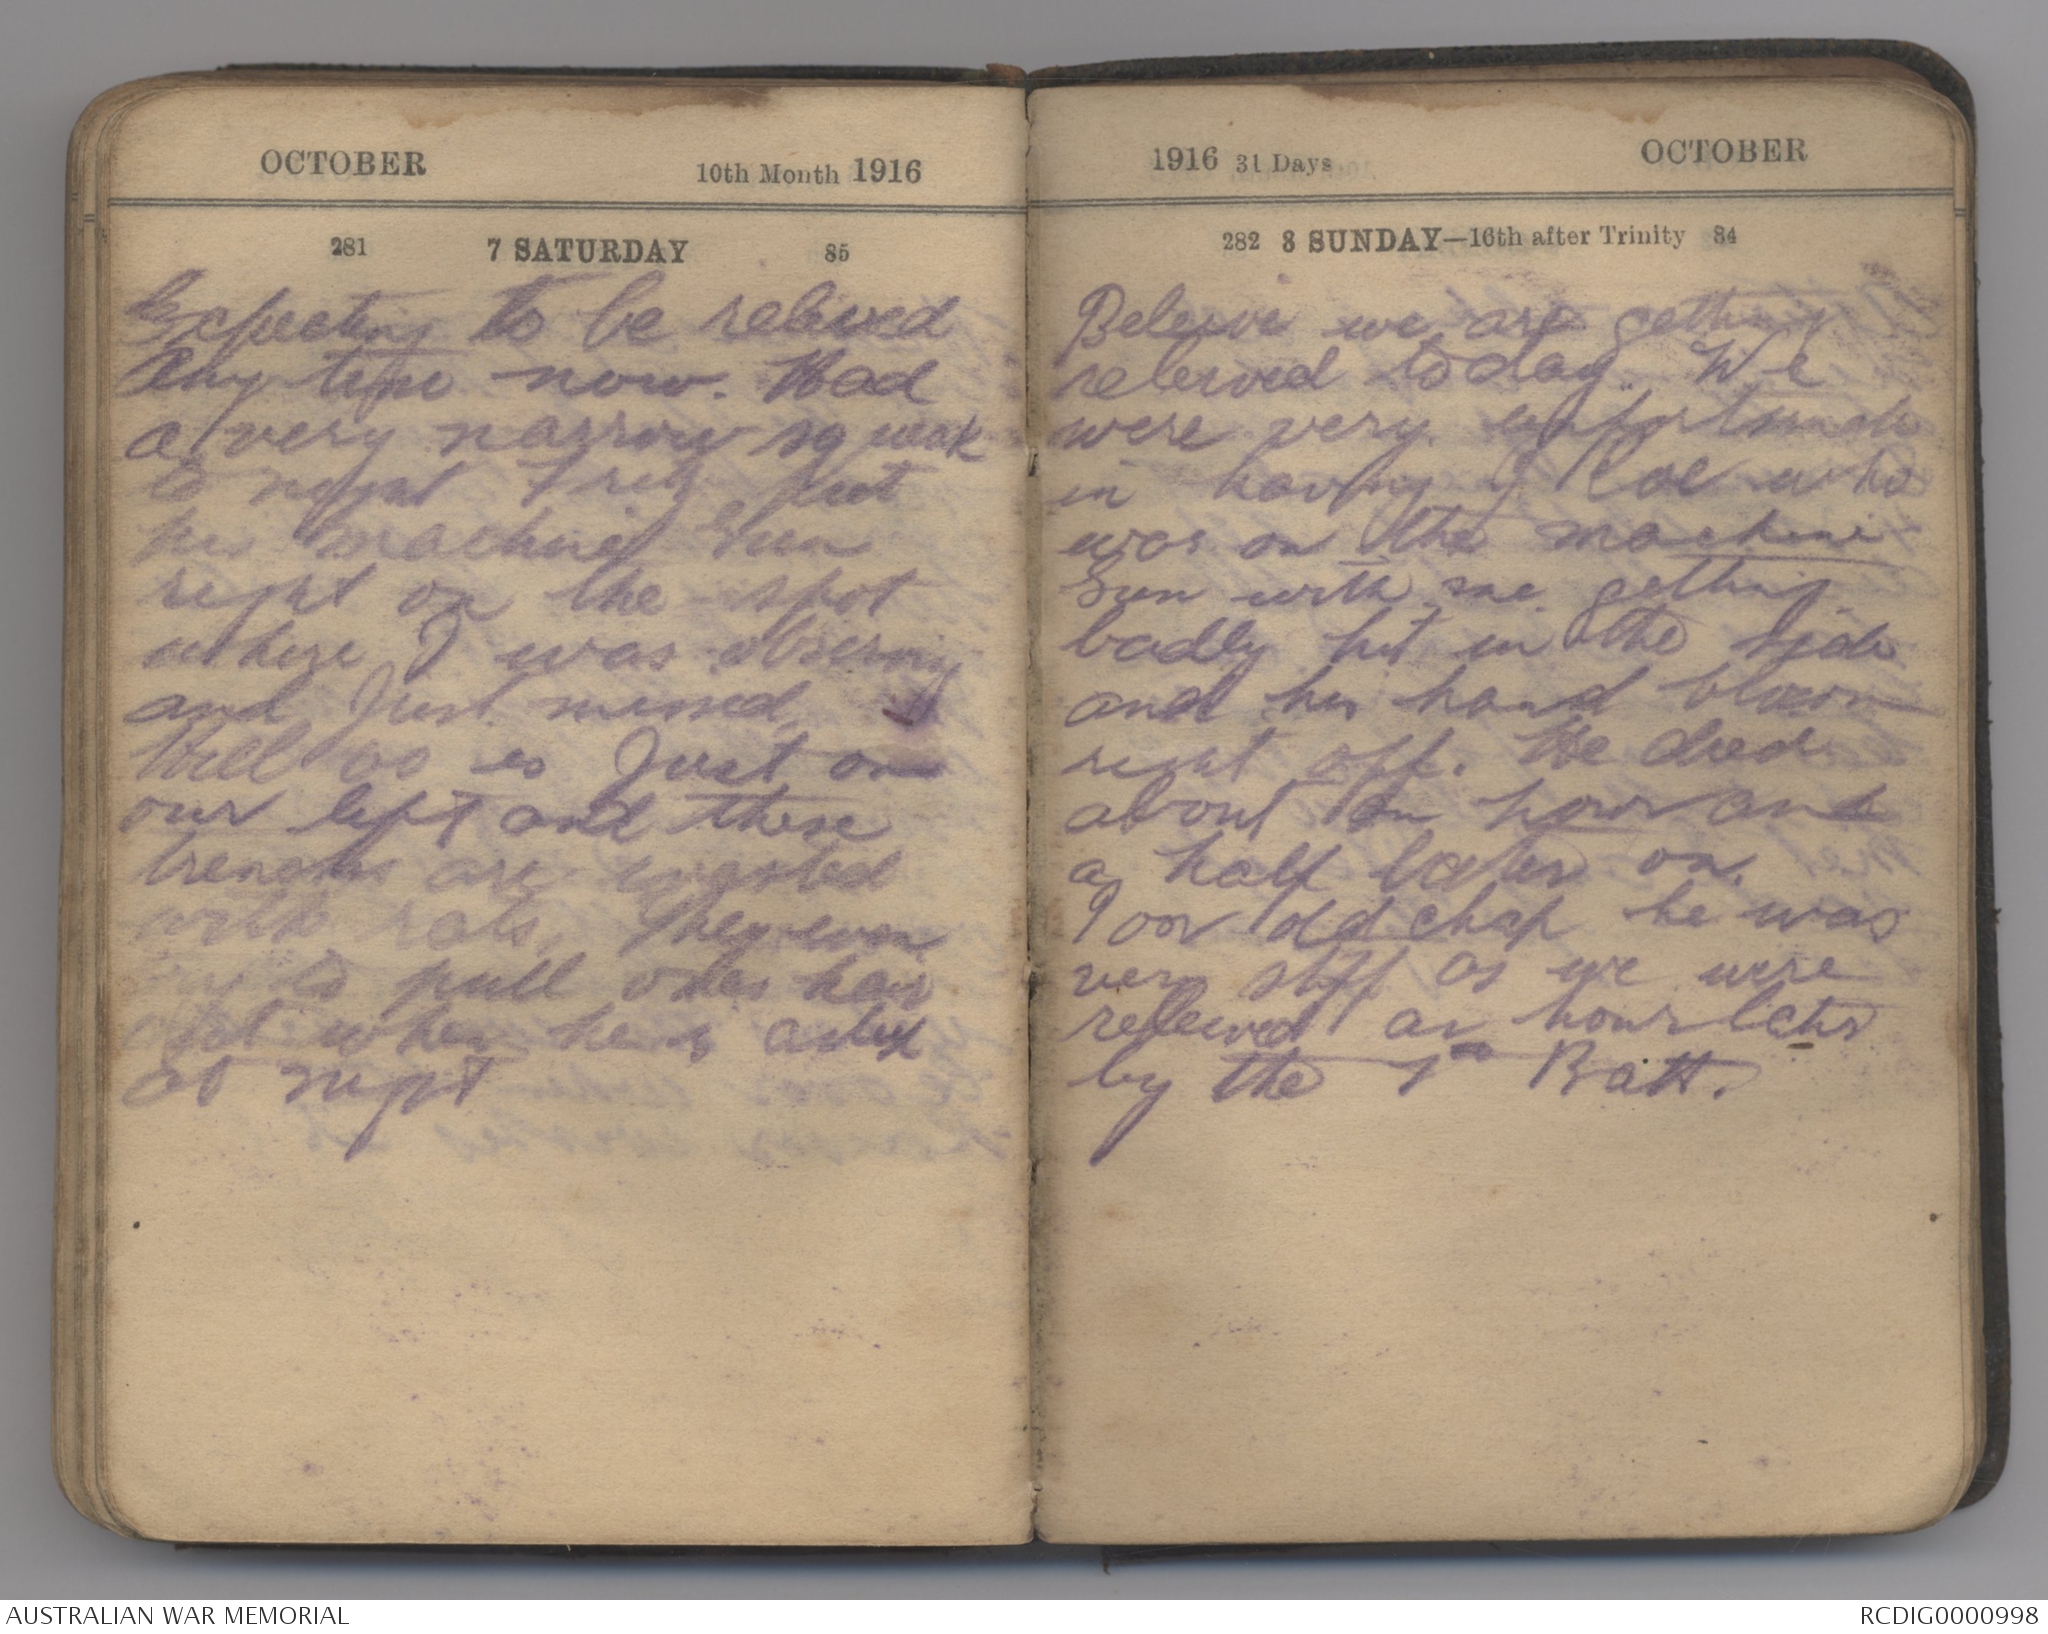 OCTOBER 10th Month 1916
281 7 SATURDAY 85
Expecting to be releived
Any time now. Had
a very narrow squeak
to night Fritz put
his machine Gun
right on the spot
where I was observing
and Just missed,
Hill 60 is Just on
our left and these
trenches are
with rats, They even
try to pull ones hair
out when he is asleep
at night
1916 31 Days OCTOBER
282 8 SUNDAY—16th after Trinity 84
Beleive we are getting
releived today. We
were very unfortunate
in having J Roe who
was on the machine
Gun with me getting
badly hit in the side
and his hand blown
right off. He died
about an hour and
a half later on.
Poor old chap he was
very stiff as we were
releived an hour later
by the Batt.
AUSTRALIAN WAR MEMORIAL
RCDIG0000998